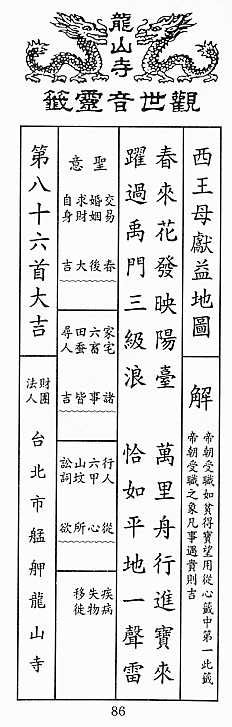 龍山寺
觀世音靈籤
西王母獻益地圖
解
帝朝受職如貧得寶望用從心籤中第一此籤
帝朝受職之象凡事遇貴則吉
春來花發映陽臺 萬里舟行進寶來
躍過禹門三級浪 恰如平地一聲雷
聖意
交易 婚姻 求財 自身
春後大吉
家宅 六畜 田蚕 尋人
諸事皆吉
行人 六甲 山墳 訟詞
從心所欲
疾病 失物 移徙
第八十六首大吉
財團法人 台北市艋舺龍山寺
86